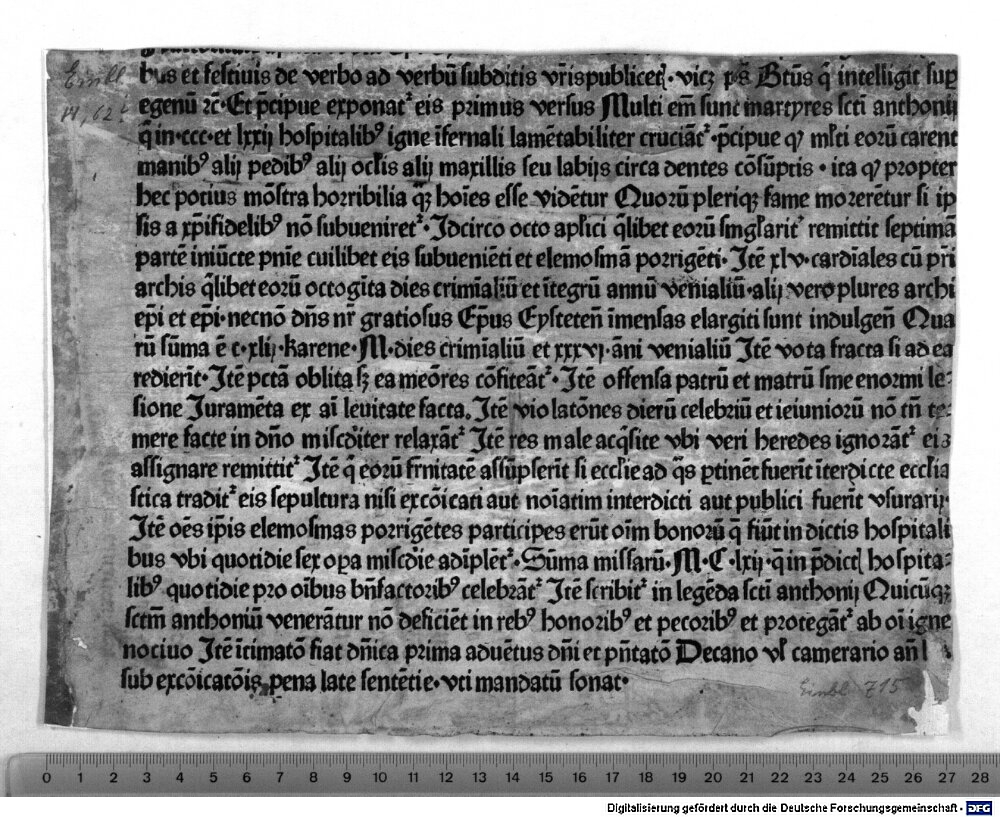 bus et festiuis de verbo ad verbū subditis vr̄is publicet᷒ · vicꝫ ps̄ Btūs q̄ intelligit sup
egenū ⁊c̄ · Et p̄cipue exponat᷒ eis primus versus Multi em̄ sunt martyres sc̄ti anthonij
q̄ in · ccc · et lxxij hospitalibꝰ igne īfernali lamētabiliter cruciāt᷒ · p̄cipue ꝙ ml̄ti eorū carent
manibꝰ alij pedibꝰ alij ocl̄is alij maxillis seu labijs circa dentes cōsūptis · ita ꝙ propter
hec potius mōstra horribilia qꝫ̄ hoīes esse vidētur Quorū pleriqꝫ fame morerētur si ip
sis a xp̄ifidelibꝰ nō subueniret᷒ · Idcirco octo apl̄ici q̄libet eorū singl̄arit᷒ remittit septimā
partē iniūcte pn̄ie cuilibet eis subueniēti et elemosinā porrigēti · Itē xlv · cardiales cū pr̄i
archis q̄libet eorū octogīta dies crimīaliū et ītegrū annū venialiū · alij vero plures archi
ep̄i et ep̄i · necnō dn̄s nr̄ gratiosus Ep̄us Eystetēn īmensas elargiti sunt indulgen̄ Qua
rū sūma ē c · xlij · karene · M · dies crimīaliū et xxxvj · āni venialiū Itē vota fracta si ad ea
redierīt · Itē pctā oblita sꝫ ea meōres cōfiteāt᷒ · Itē offensa patrū et matrū sine enormi le⸗
sione Juramēta ex aī leuitate facta. Itē violatōnes dierū celebriū et ieiuniorū nō tn̄ te⸗
mere facte in dn̄o misc̄diter relaxāt᷒ Itē res male acq̄site vbi veri heredes ignorāt᷒ eis
assignare remittit᷒ Itē q̄ eorū fr̄nitatē assūpserīt si eccl̄ie ad q̄s ꝑtinēt fuerīt īterdicte eccl̄ia
stica tradit᷒ eis sepultura nisi excōicati aut noīatim interdicti aut publici fuerīt vsurarij ·
Itē oēs ip̄is elemosinas porrigētes participes erūt oīm bonorū q̄ fiūt in dictis hospitali
bus vbi quotidie sex oꝑa misc̄die adīplēt᷒ · Sūma missarū · M · C · lxij · q̄ in p̄dictꝭ hospita⸗
libꝰ quotidie pro oībus bn̄factoribꝰ celebrāt᷒ Itē scribit᷒ in legēda sc̄ti anthonij Quicūqꝫ
sctm̄ anthoniū venerātur nō deficiēt in rebꝰ honoribꝰ et pecoribꝰ et protegāt᷒ ab oī igne
nociuo Itē īt̄imatō fiat dn̄ica prima aduētus dn̄i et pn̄tatō Decano vl̄ camerario an̄
sub excōicatōis pena late sentētie · vti mandatū sonat ·
Einbl. 715
0 1 2 3 4 5 6 7 8 9 10 11 12 13 14 15 16 17 18 19 20 21 22 23 24 25 26 27 28
Digitalisierung gefördert durch die Deutsche Forschungsgemeinschaft - DFG